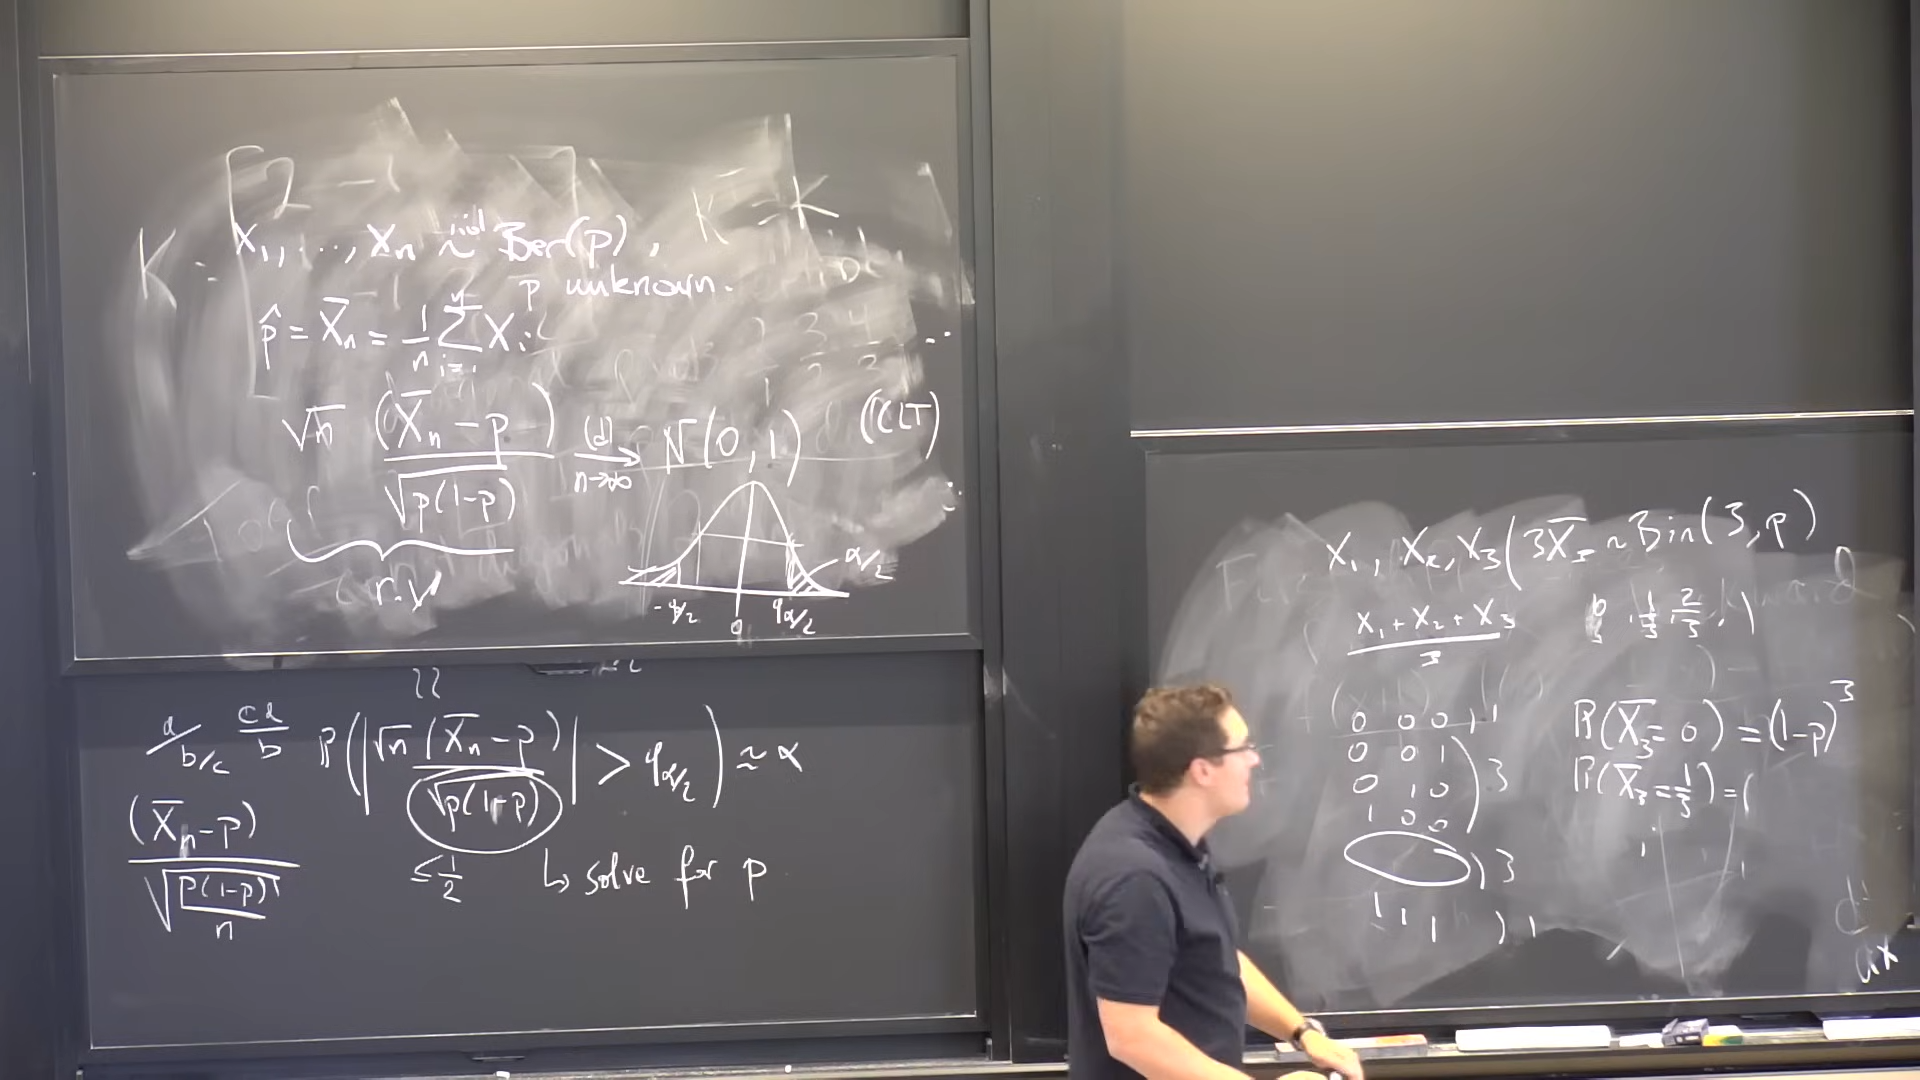 X₁, ..., Xₙ ~ iid Ber(p),
p unknown.
p̂ = X̄ₙ = 1/n Σ_{i=1}^{n} Xᵢ
√n (X̄ₙ - p) / √(p(1-p)) →(d) n→∞ N(0,1) (CLT)
r.v
α/2
-q_{α/2} 0 q_{α/2}
a / b/c
ca / b
P( | √n (X̄ₙ - p) / √(p(1-p)) | > q_{α/2} ) ≈ α
≤ 1/2 ↳ solve for p
(X̄ₙ - p) / √(p(1-p)/n)
K =
[2 -1
X₁, X₂, X₃ ( 3X̄₃ ~ Bin(3,p)
X₁ + X₂ + X₃ / 3
1/3, 2/3, 1
0 0 0 ) 1
0 0 1
0 1 0 ) 3
1 0 0
) 3
1 1 1 ) 1
P(X̄₃ = 0) = (1-p)³
P(X̄₃ = 1/3) = (